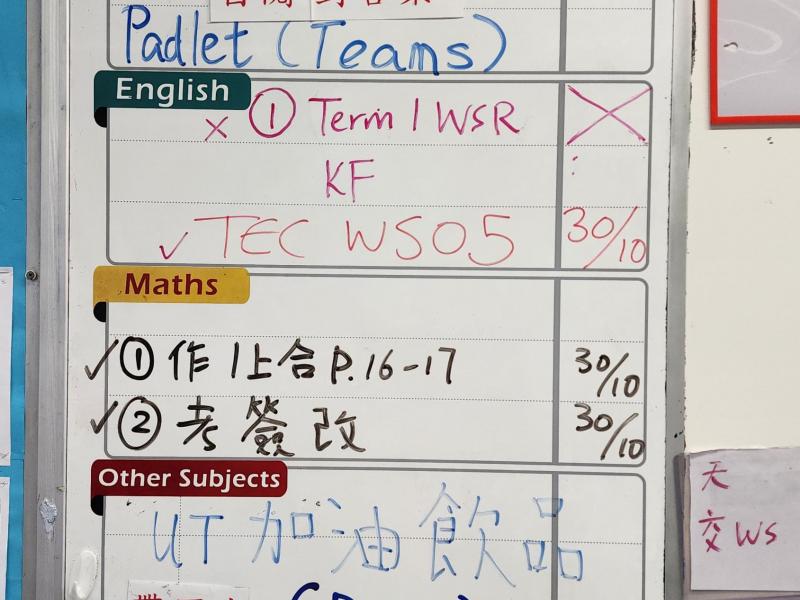 Padlet (Teams)
English
× ① Term 1 WSR
KF
✓ TEC WS05 30/10
Maths
✓ ① 作 1上合 P.16-17 30/10
✓ ② 考簽改 30/10
Other Subjects
UT 加油飲品
天
交 WS